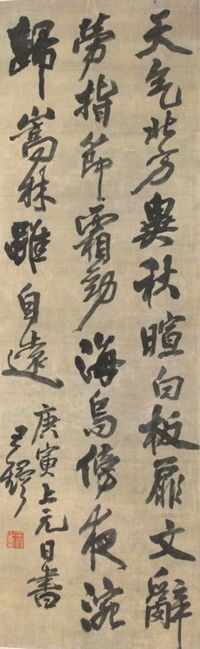 天气北方異秋暄白板扉文辭
勞指節霜勁海烏傍夜流
歸嵩林雖自遠
庚寅上元日書
王鐸